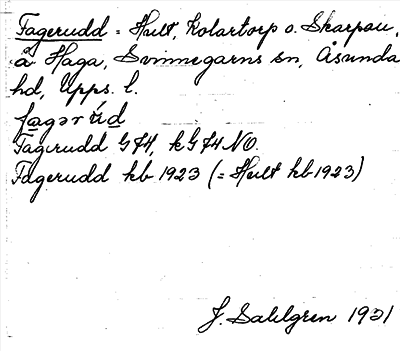 Fagerudd = Hult, Kolartorp o. Skarpau,
å Haga, Svinnegarns sn, Åsunda
hd, Upps. l.
fagər ŭ́d
Fagerudd G74, kG74 NO.
Fagerudd kb 1923 (= Hult kb 1923)
J. Sahlgren 1931